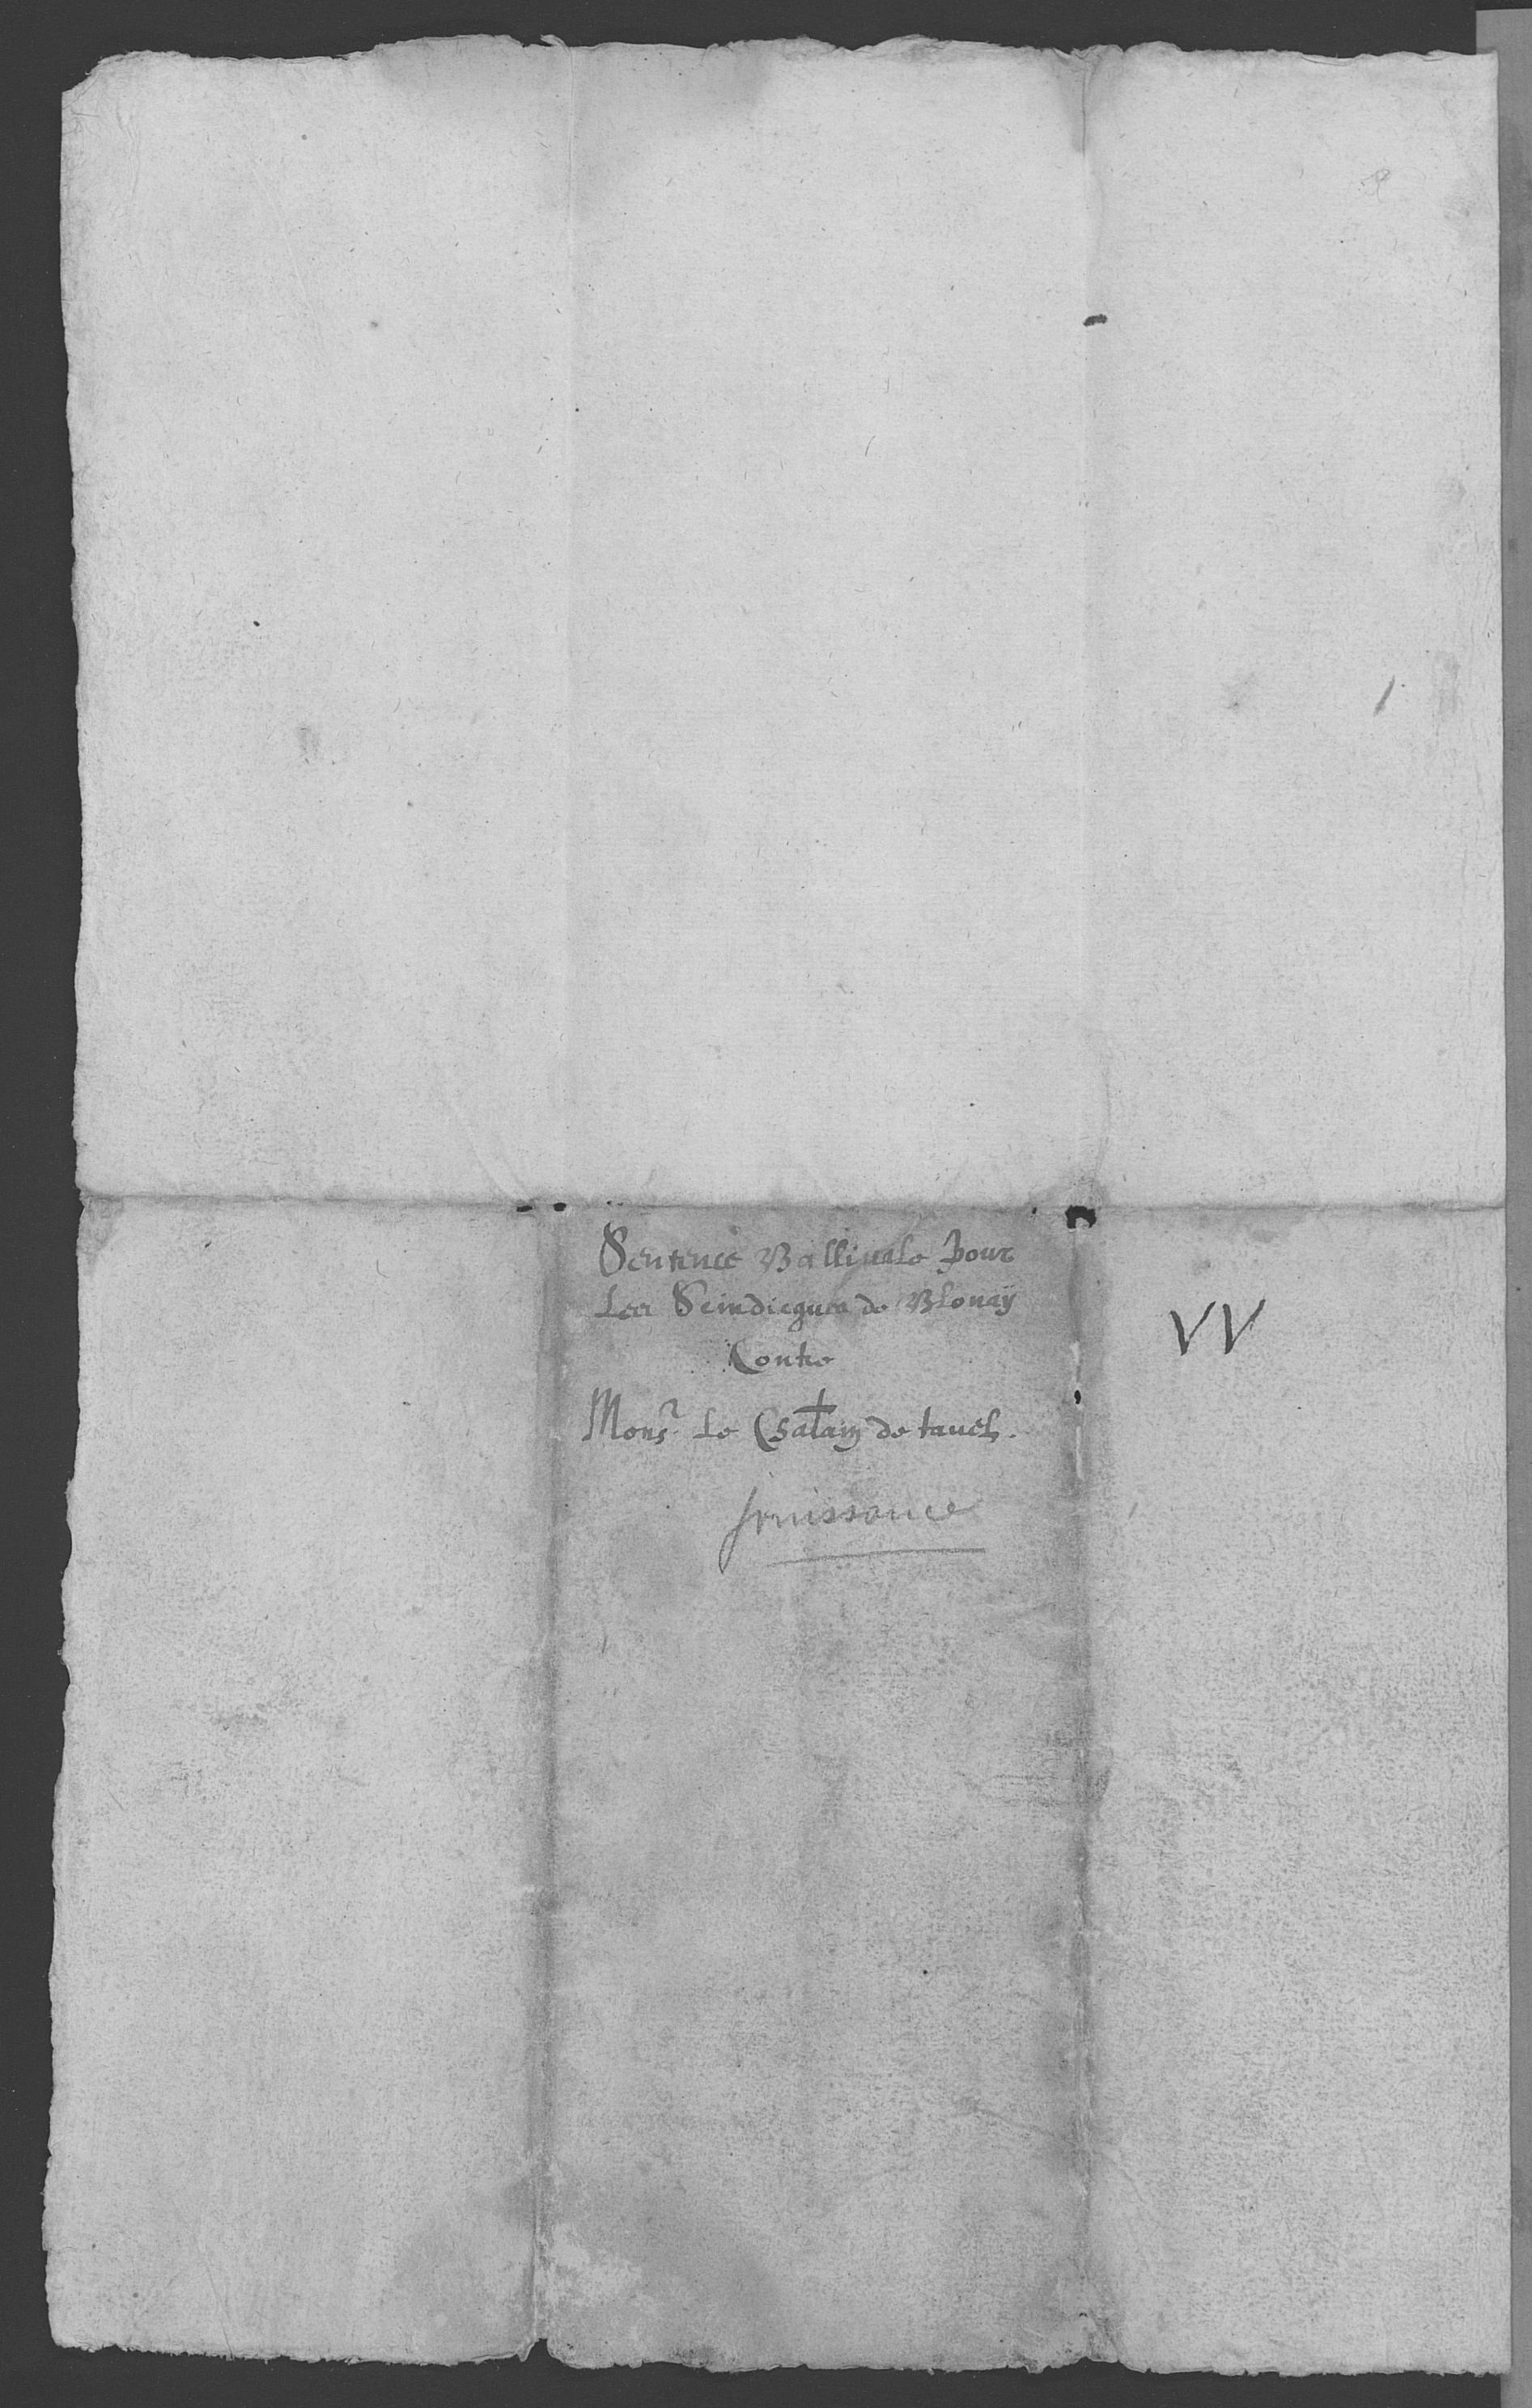 Sentence Ballivale pour
Les Scindicques de Blonay
Contre
Monsr Le Chatain de tavel.
jouissance
VV